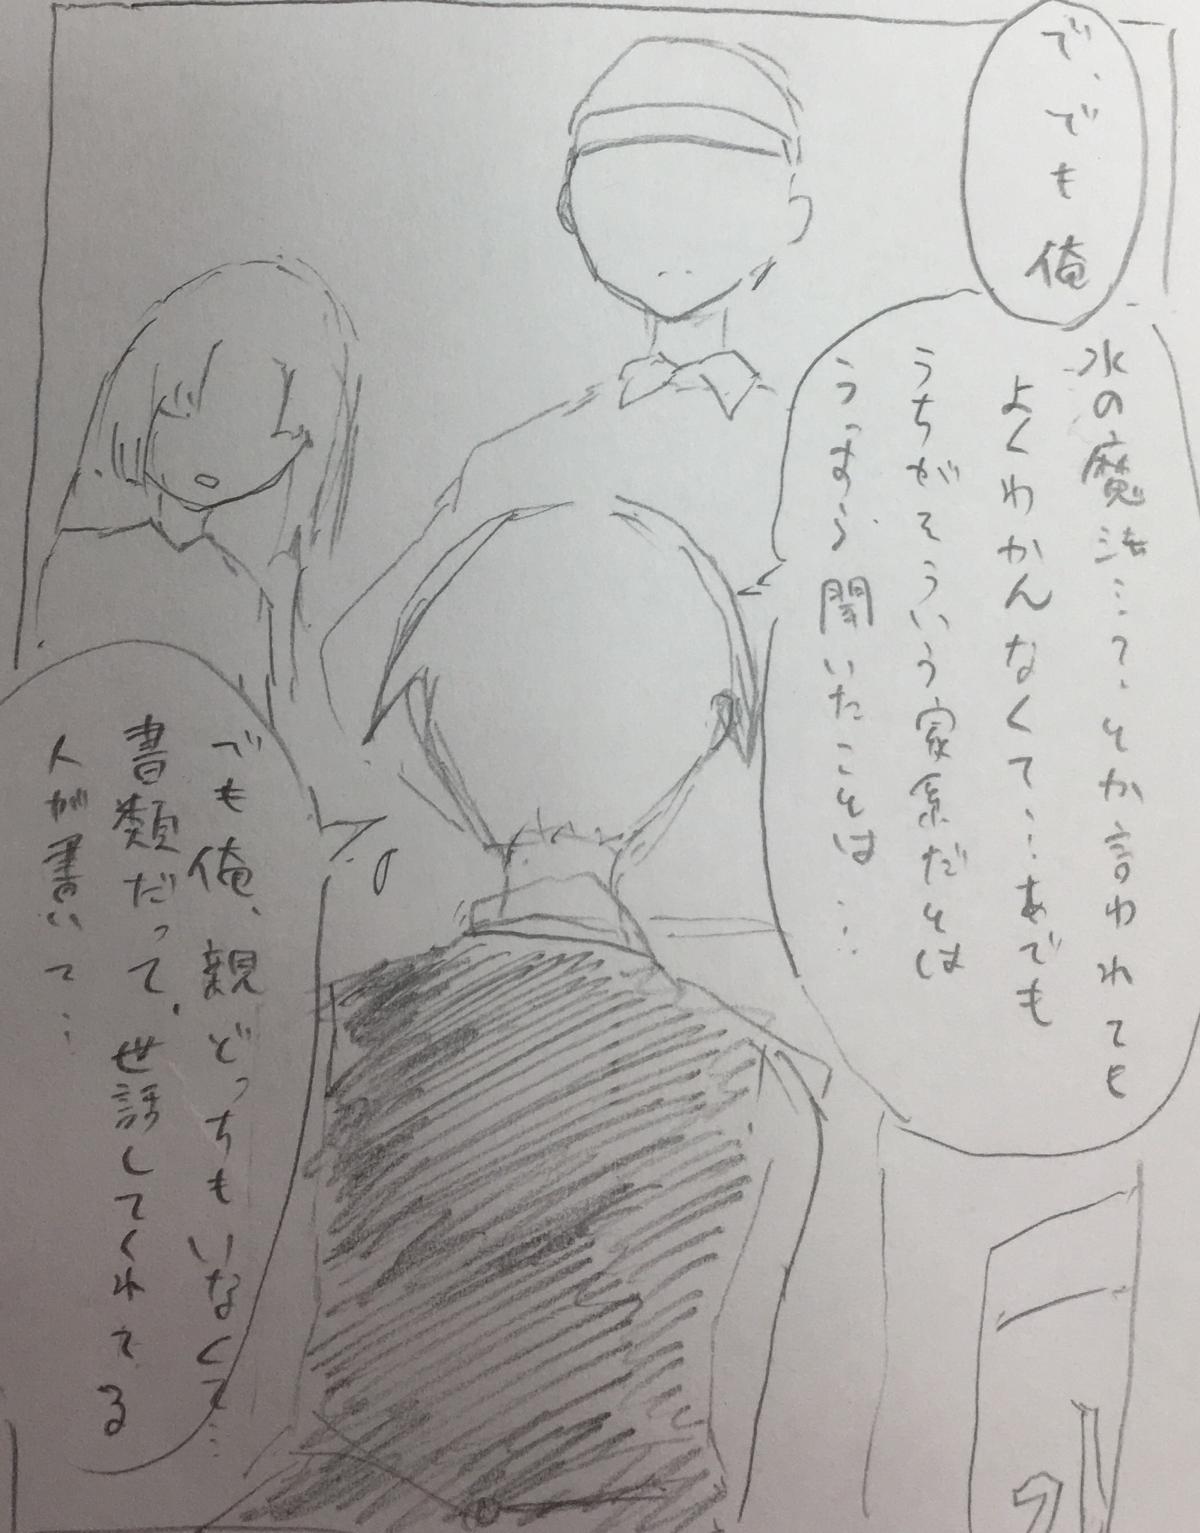 で、でも俺
水の魔法…?とか言われても
よくわかんなくて…あでも
うちがそういう家系だとは
うっすら聞いたことは…
でも俺、親どっちもいなくて…
書類だって、世話してくれてる
人が書いて…